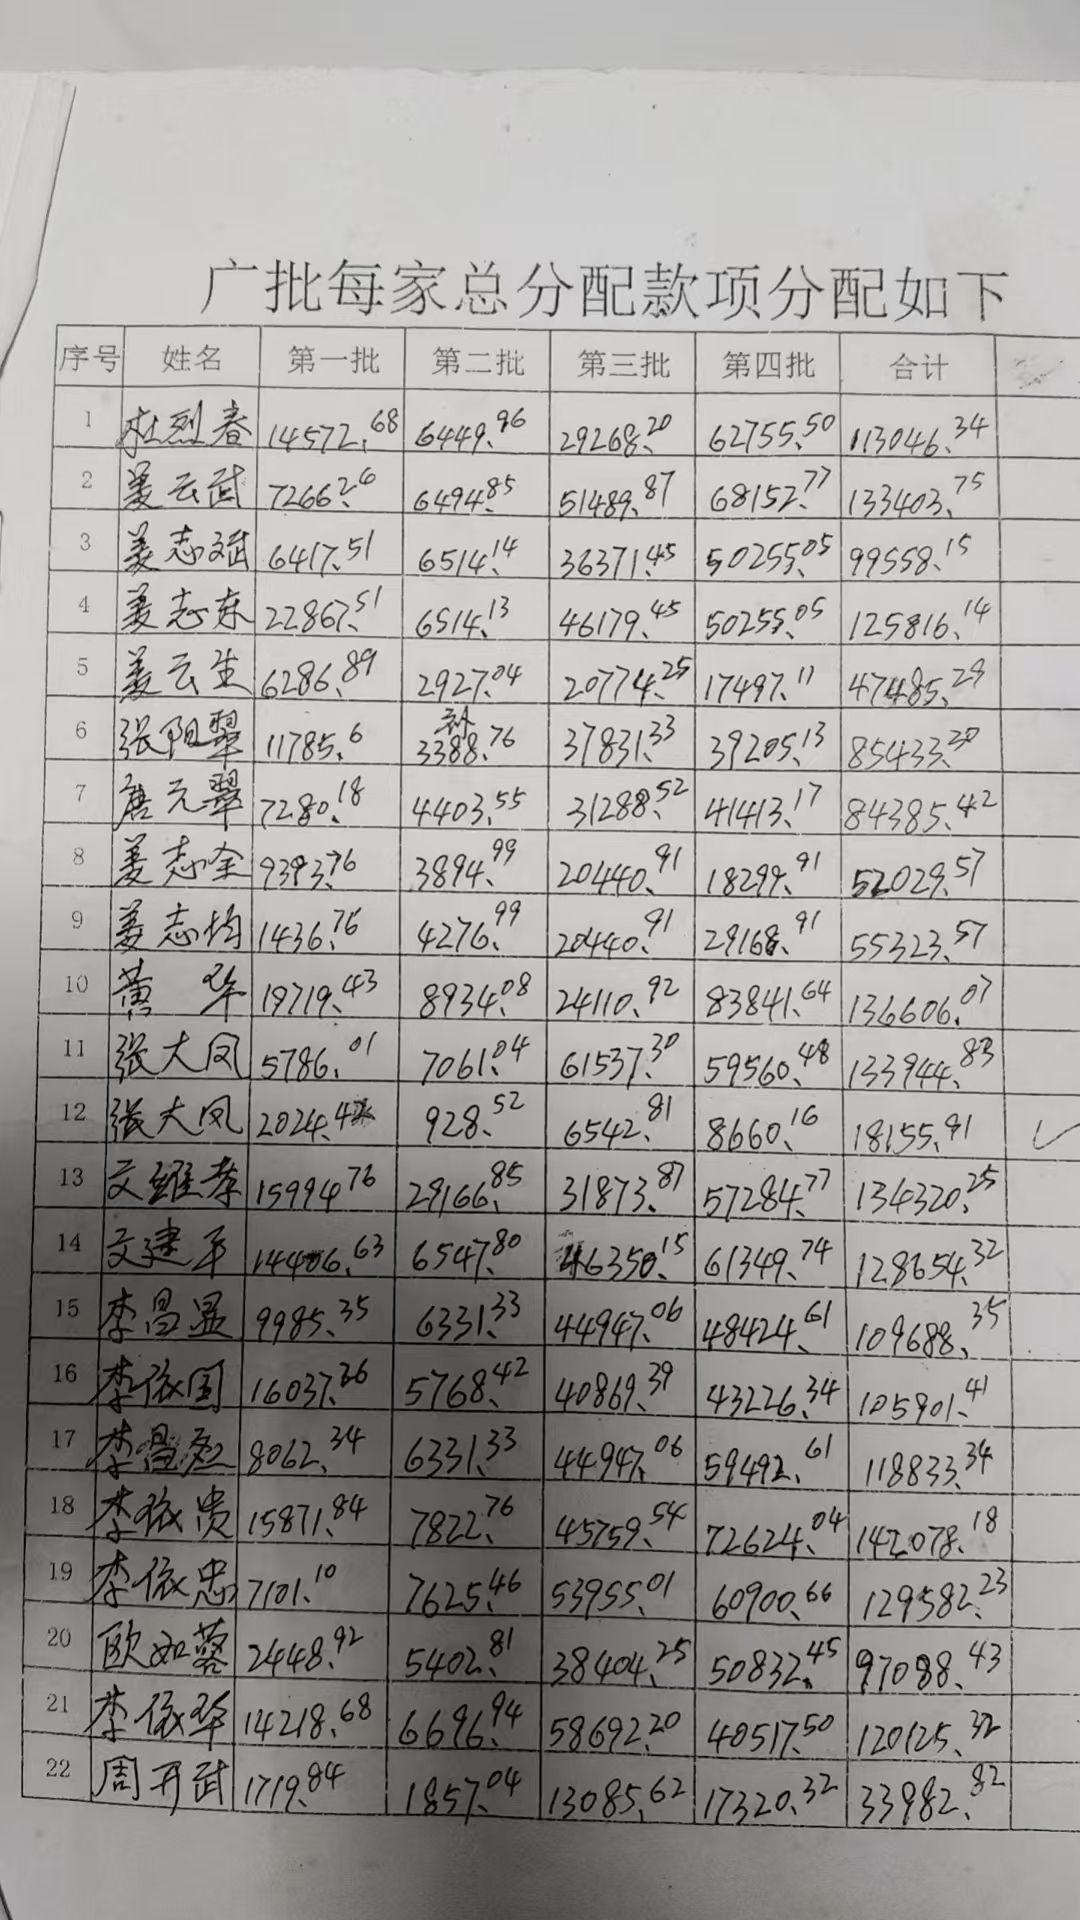 广批每家总分配款项分配如下
序号 姓名 第一批 第二批 第三批 第四批 合计
1 杜烈春 14572.68 6449.96 29268.20 62755.50 113046.34
2 姜云武 7266.26 6494.85 51489.87 68152.77 133403.75
3 姜志斌 6417.51 6514.14 36371.45 50255.05 99558.15
4 姜志东 22867.51 6514.13 46179.45 50255.05 125816.14
5 姜云生 6286.89 2927.04 20774.25 17497.11 47485.29
6 张阳翠 11785.6 3388.76 37831.33 39205.13 85433.20
7 唐元翠 7280.18 4403.55 31288.52 41413.17 84385.42
8 姜志全 9393.76 3894.99 20440.91 18299.91 52029.57
9 姜志均 1436.76 4276.99 20440.91 29168.91 55323.57
10 黄华 19719.43 8934.08 24110.92 83841.64 136606.07
11 张大凤 5786.01 7061.04 61537.30 59560.48 133944.83
12 张大凤 2024.42 928.52 6542.81 8660.16 18155.91
13 文维孝 15994.76 29166.85 31873.87 57284.77 134320.25
14 文建平 14406.63 6547.80 46350.15 61349.74 128654.32
15 李昌显 9985.35 6331.33 44947.06 48424.61 109688.35
16 李依国 16037.26 5768.42 40869.39 43226.34 105901.41
17 李昌 8062.34 6331.33 44947.06 59492.61 118833.34
18 李依贵 15871.84 7822.76 45759.54 72624.04 142078.18
19 李依忠 7101.10 7625.46 53955.01 60900.66 129582.23
20 欧如蓉 2448.92 5402.81 38404.25 50832.45 97088.43
21 李依华 14218.68 6696.94 58692.20 40517.50 120125.32
22 周开武 1719.84 1857.04 13085.62 17320.32 33982.82